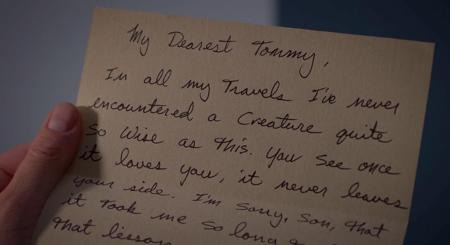 My Dearest Tommy,
In all my Travels I've never
encountered a Creature quite
so Wise as this. You see once
it loves you, it never leaves
your side. I'm sorry, son, that
it took me so long
that lesson